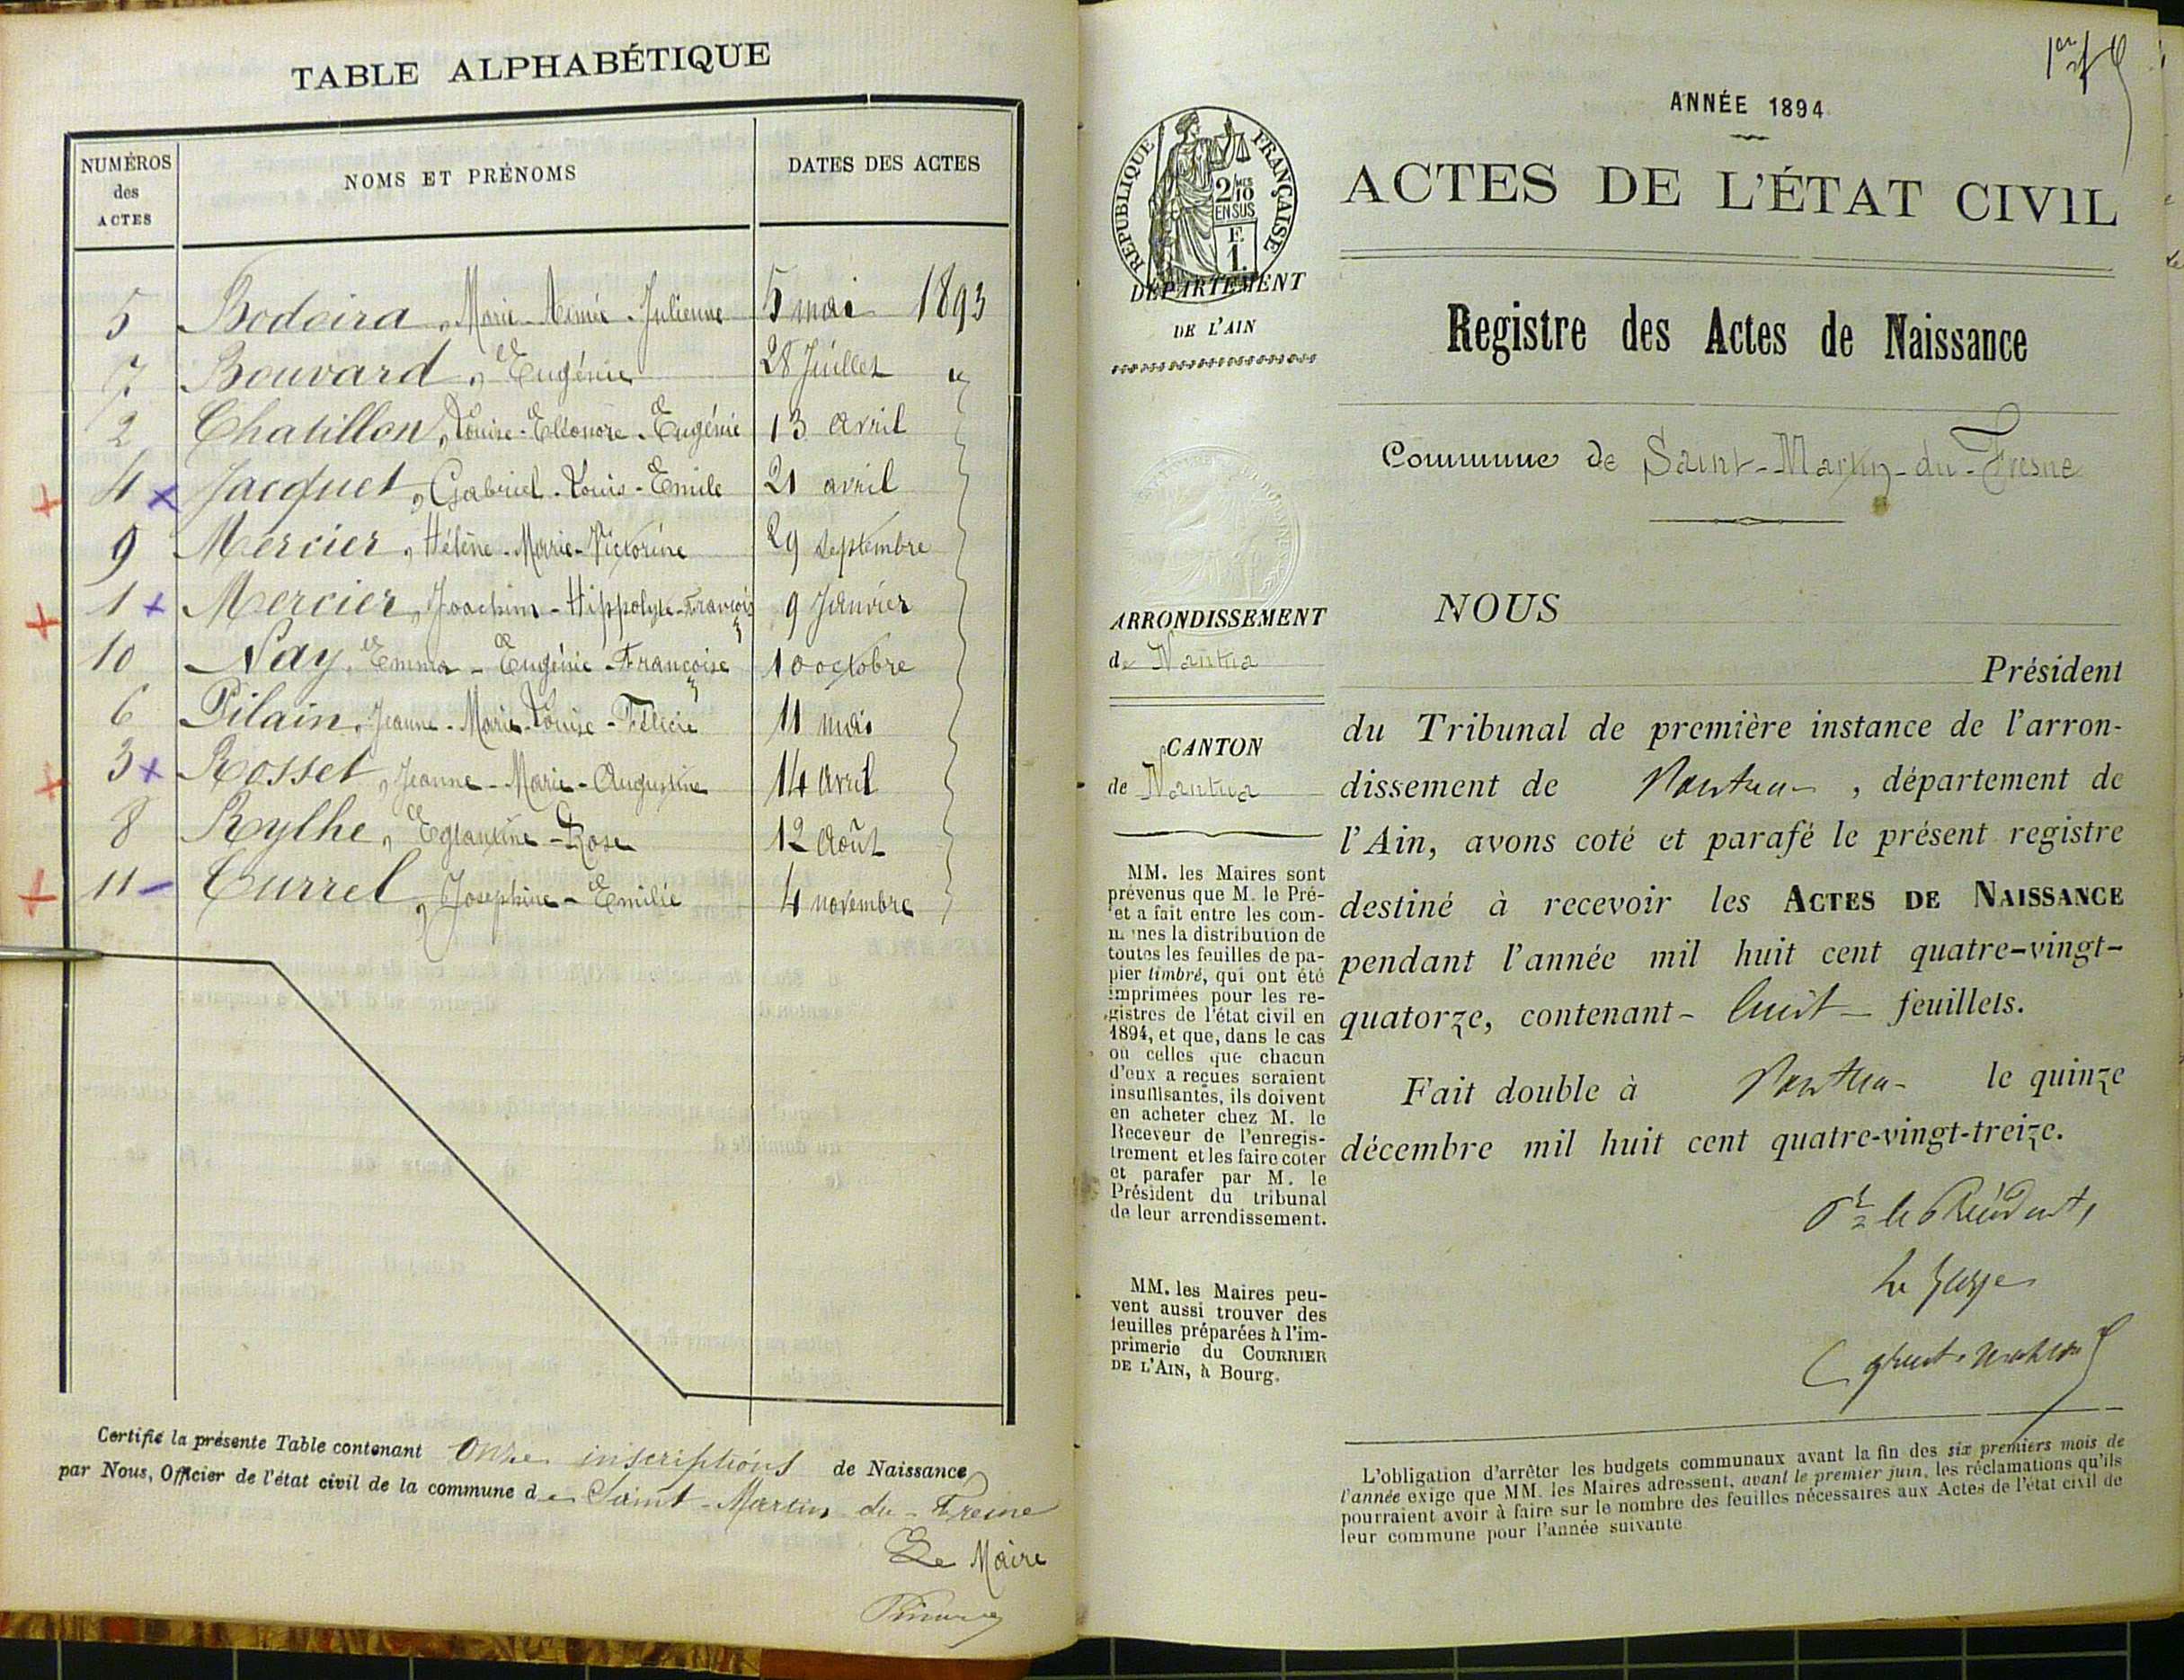 TABLE ALPHABÉTIQUE
NUMÉROS des ACTES
NOMS ET PRÉNOMS
DATES DES ACTES
5 Bodoira, Marie-Aimée-Julienne 5 mai 1893
7 Bouvard, Eugénie 28 Juillet "
2 Chatillon, Louise-Eléonore-Eugénie 13 avril
4 x Jacquet, Gabriel-Louis-Emile 21 avril
9 Mercier, Hélène-Marie-Victorine 29 septembre
1 x Mercier, Joachim-Hippolyte-François 9 Janvier
10 Nay, Emma-Eugénie-Françoise 10 octobre
6 Pilain, Jeanne-Marie-Louise-Félicie 11 mai
3 x Rosset, Jeanne-Marie-Augustine 14 avril
8 Rylhe, Eglantine-Rose 12 Août
11 - Currel, Joséphine-Emilie 4 novembre
Certifié la présente Table contenant Onze inscriptions de Naissance
par Nous, Officier de l'état civil de la commune de Saint-Martin du-Fresne
Le Maire
1er
ANNÉE 1894
ACTES DE L'ÉTAT CIVIL
RÉPUBLIQUE FRANÇAISE
2/10 MES
EN SUS
F.
1.
DÉPARTEMENT
DE L'AIN
Registre des Actes de Naissance
Commune de Saint-Martin-du-Fresne
ARRONDISSEMENT
de Nantua
CANTON
de Nantua
MM. les Maires sont
prévenus que M. le Pré-
fet a fait entre les com-
munes la distribution de
toutes les feuilles de pa-
pier timbré, qui ont été
imprimées pour les re-
gistres de l'état civil en
1894, et que, dans le cas
où celles que chacun
d'eux a reçues seraient
insuffisantes, ils doivent
en acheter chez M. le
Receveur de l'enregis-
trement et les faire coter
et parafer par M. le
Président du tribunal
de leur arrondissement.
MM. les Maires peu-
vent aussi trouver des
feuilles préparées à l'im-
primerie du COURRIER
DE L'AIN, à Bourg.
NOUS
Président
du Tribunal de première instance de l'arron-
dissement de Nantua, département de
l'Ain, avons coté et parafé le présent registre
destiné à recevoir les ACTES DE NAISSANCE
pendant l'année mil huit cent quatre-vingt-
quatorze, contenant - huit - feuillets.
Fait double à Nantua - le quinze
décembre mil huit cent quatre-vingt-treize.
Pr le Président,
Le Juge
L'obligation d'arrêter les budgets communaux avant la fin des six premiers mois de
l'année exige que MM. les Maires adressent, avant le premier juin, les réclamations qu'ils
pourraient avoir à faire sur le nombre des feuilles nécessaires aux Actes de l'état civil de
leur commune pour l'année suivante